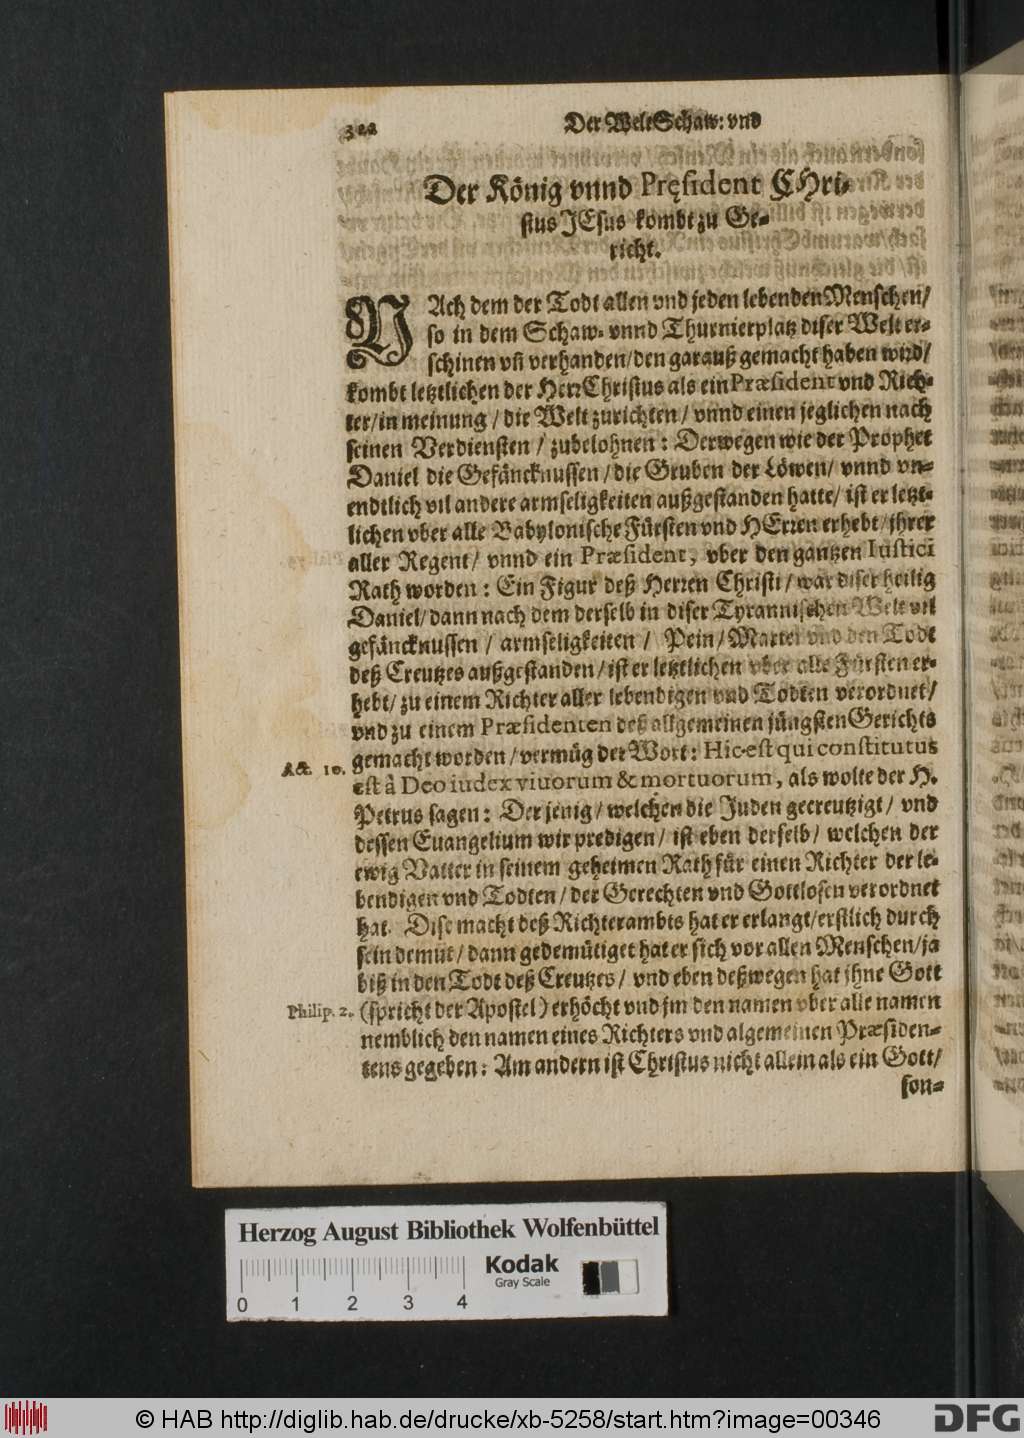 322
Der Welt Schaw: vnd
Der König vnnd Pręsident CHri-
stus JEsus kombt zu Ge-
richt.
NAch dem der Todt allen vnd jeden lebenden Menschen/
so in dem Schaw- vnnd Thurnierplatz diser Welt er-
schinen vñ verhanden/den garauß gemacht haben wird/
kombt letztlichen der Herr Christus als ein Præsident vnd Rich-
ter/in meinung / die Welt zurichten / vnnd einen jeglichen nach
seinen Verdiensten / zubelohnen : Derwegen wie der Prophet
Daniel die Gefäncknussen / die Gruben der Löwen/ vnnd vn-
endtlich vil andere armseligkeiten außgestanden hatte/ ist er letzt-
lichen vber alle Babylonische Fürsten vnd HErren erhebt / jhrer
aller Regent/ vnnd ein Præsident, vber den gantzen Iustici
Rath worden : Ein Figur deß Herren Christi / war diser heilig
Daniel/ dann nach dem derselb in diser Tyrannischen Welt vil
gefäncknussen / armseligkeiten / Pein / Marter vnd den Todt
deß Creutzes außgestanden / ist er letztlichen vber alle Fürsten er-
hebt / zu einem Richter aller lebendigen vnd Todten verordnet/
vnd zu einem Præsidenten deß allgemeinen jüngsten Gerichts
gemacht worden / vermüg der Wort : Hic est qui constitutus
Act. 10.
est à Deo iudex viuorum & mortuorum, als wolte der H.
Petrus sagen : Der jenig / welchen die Juden gecreutzigt / vnd
dessen Euangelium wir predigen / ist eben derselb / welchen der
ewig Vatter in seinem geheimen Rath für einen Richter der le-
bendigen vnd Todten / der Gerechten vnd Gottlosen verordnet
hat. Dise macht deß Richterambts hat er erlangt/erstlich durch
sein demut / dann gedemütiget hat er sich vor allen Menschen/ja
biß in den Todt deß Creutzes / vnd eben deßwegen hat jhne Gott
Philip. 2.
(spricht der Apostel) erhöcht vnd jm den namen vber alle namen
nemblich den namen eines Richters vnd algemeinen Præsiden-
tens gegeben : Am andern ist Christus nicht allein als ein Gott/
son-
Herzog August Bibliothek Wolfenbüttel
Kodak
Gray Scale
0 1 2 3 4
© HAB http://diglib.hab.de/drucke/xb-5258/start.htm?image=00346
DFG